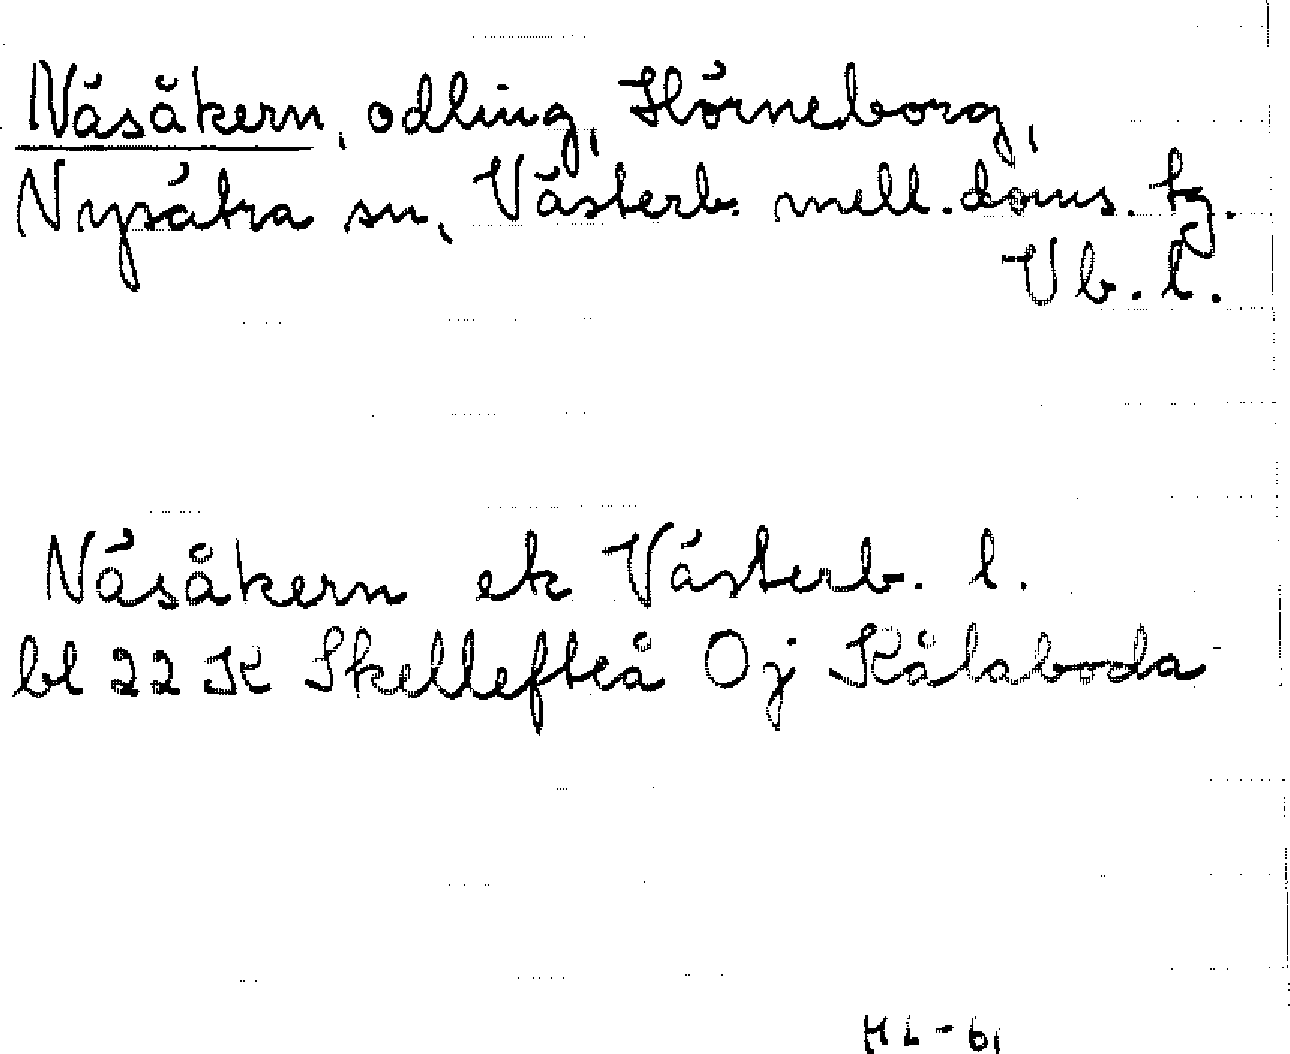 Näsåkern, odling, Hörneborg,
Nysätra sn, Västerb. mell. doms. tg.
Vb. l.
Näsåkern ek Västerb. l.
bl 22 K Skellefteå Oj Kålaboda
HL-61